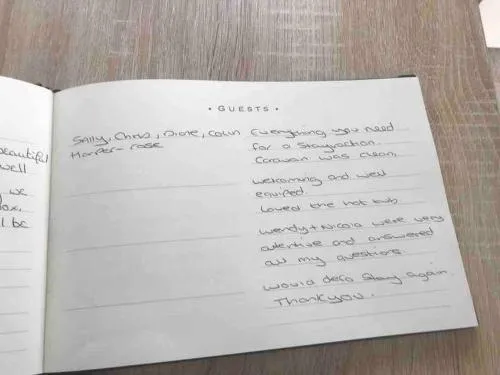 eautiful
well
we
lox,
l be
• GUESTS •
Sally, Chris, Diane, Colin
Harper-rose
Everything you need
for a Staycation.
Caravan was clean,
welcoming and well
equiped.
Loved the hot tub
Wendy + Nicola were very
attentive and answered
all my questions
would defo Stay again.
Thankyou.